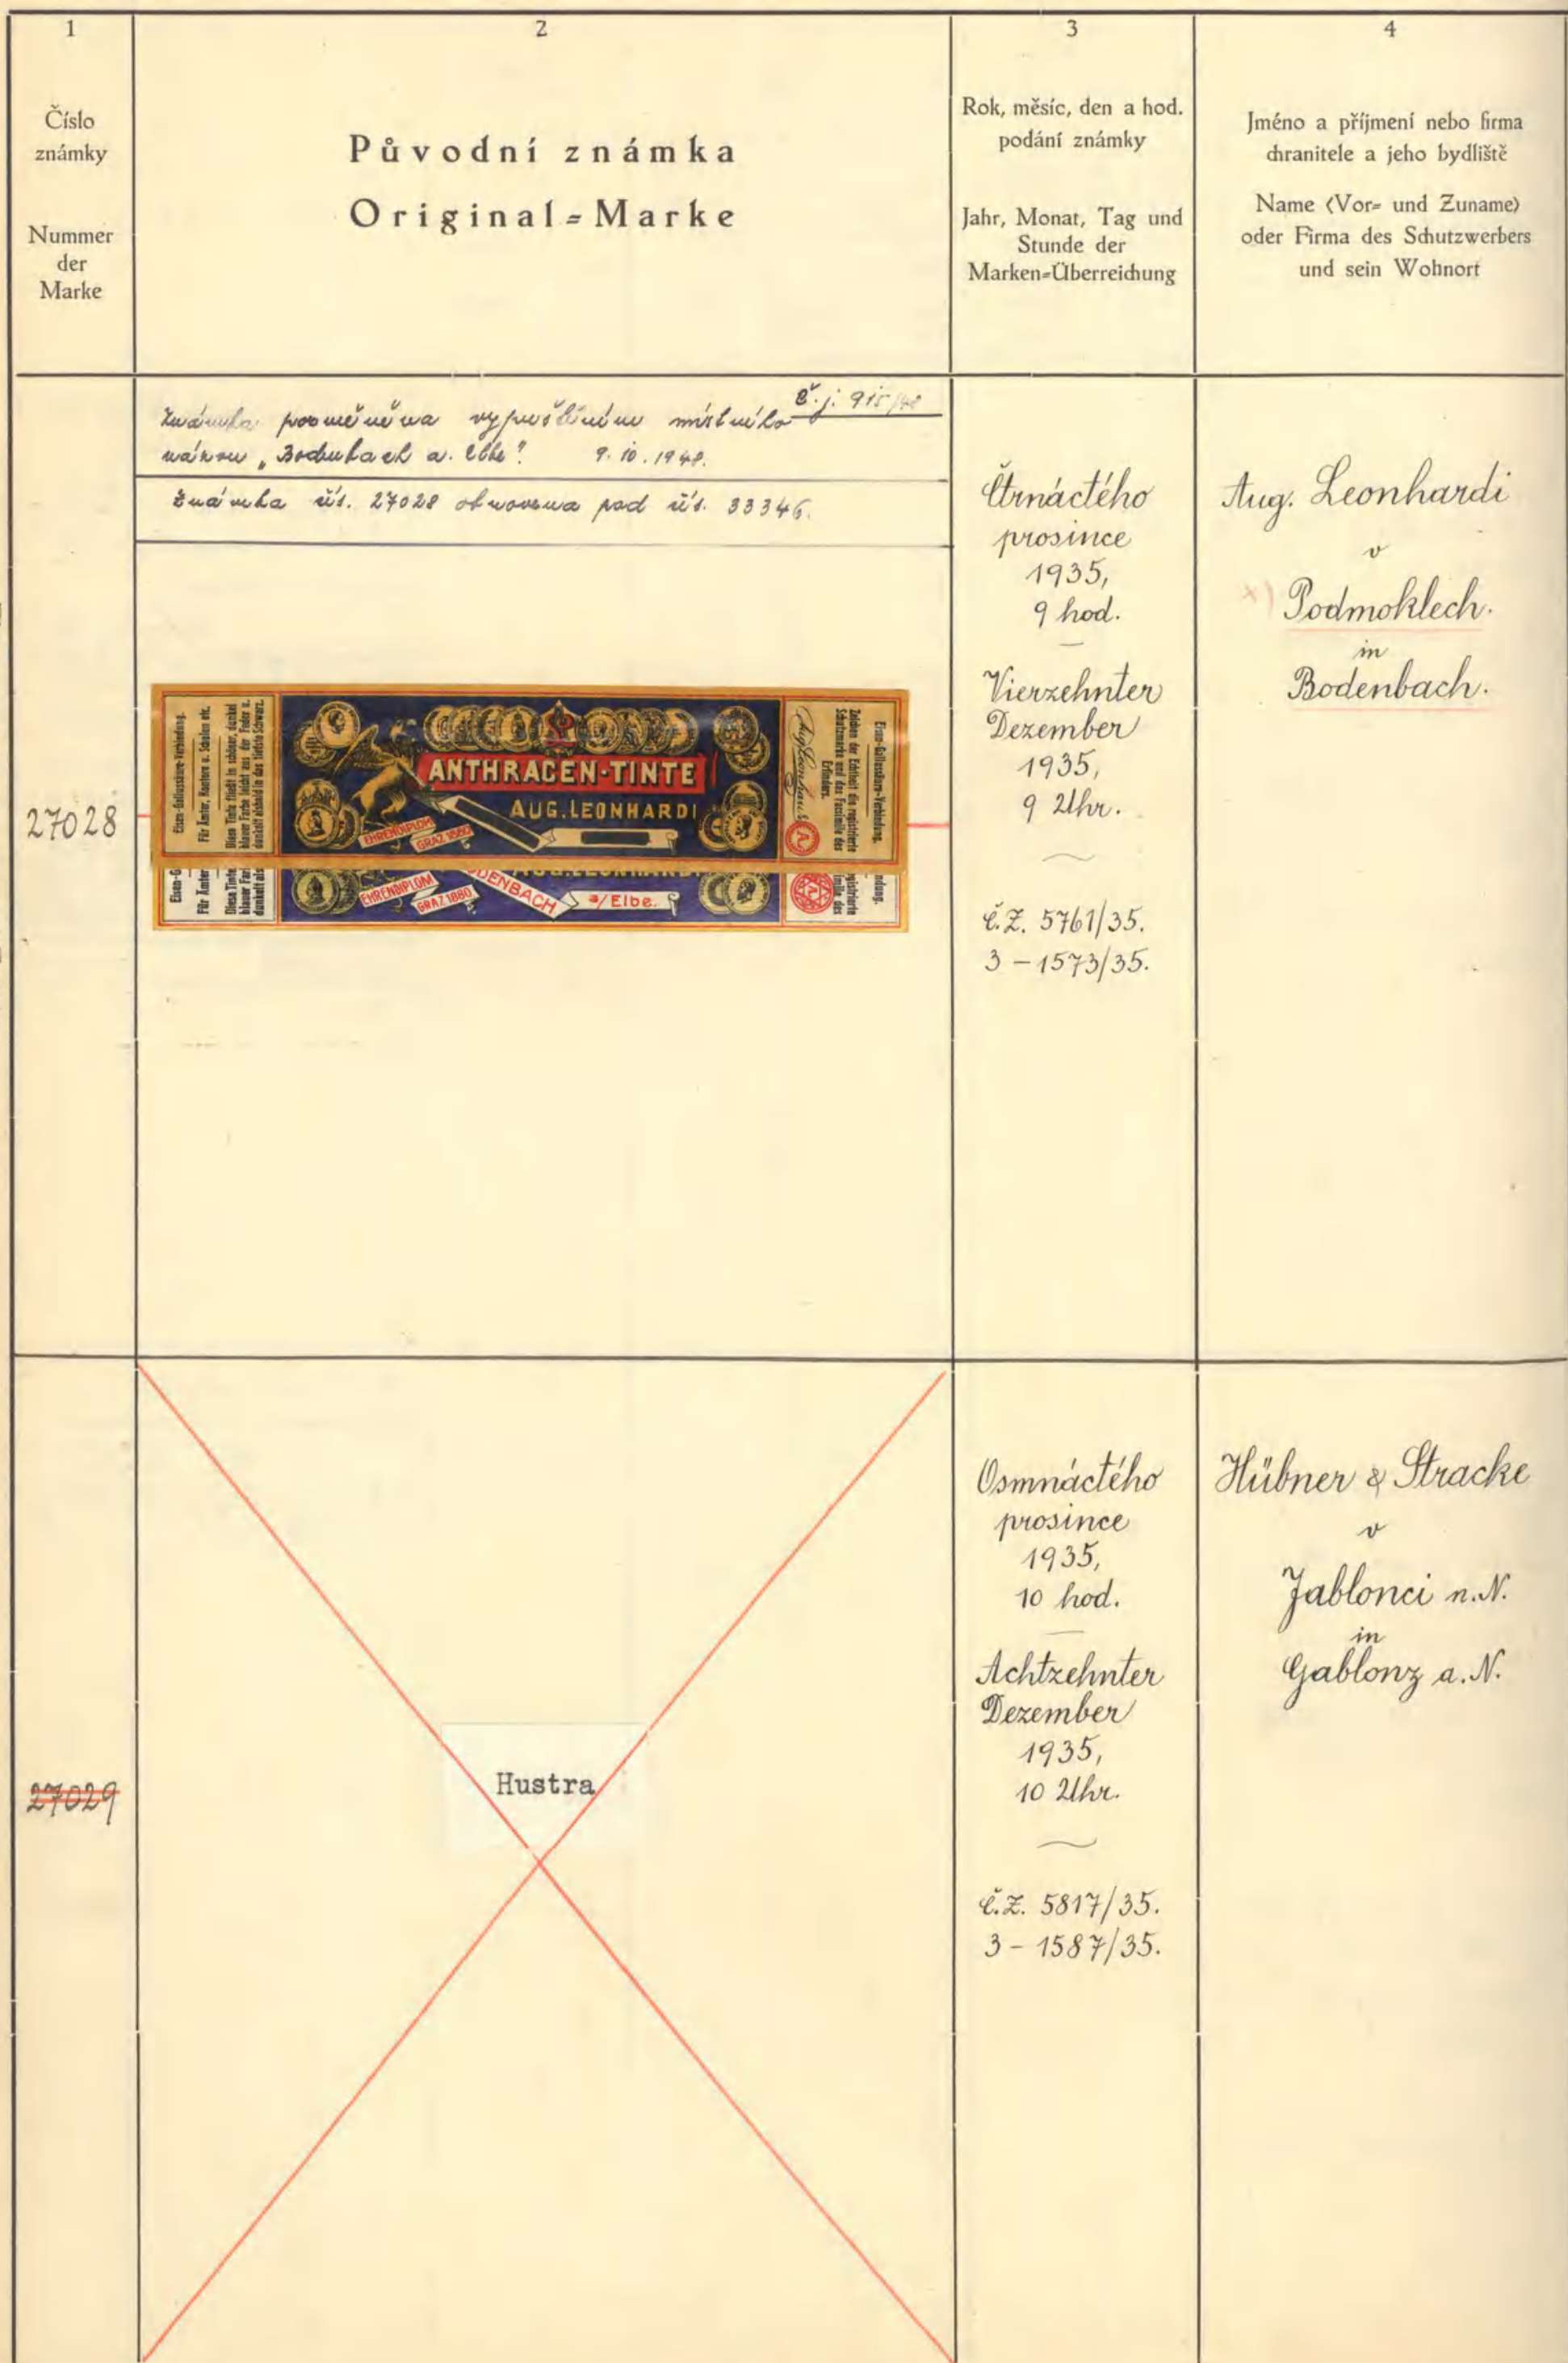 1
Číslo
známky
Nummer
der
Marke
2
Původní známka
Original=Marke
3
Rok, měsíc, den a hod.
podání známky
Jahr, Monat, Tag und
Stunde der
Marken=Überreichung
4
Jméno a příjmení nebo firma
chranitele a jeho bydliště
Name (Vor= und Zuname)
oder Firma des Schutzwerbers
und sein Wohnort
27028
č.j. 915/48
Známka pozměněna vypuštěním místního
názvu „Bodenbach a. Elbe" 9.10.1948.
Známka čís. 27028 obnovena pod čís. 33346.
Eisen-Gallussäure-Verbindung.
Für Ämter, Kontore u. Schulen etc.
Diese Tinte fließt in schöner, dunkel
blauer Farbe leicht aus der Feder u.
dunkelt alsbald in das tiefste Schwarz.
ANTHRACEN-TINTE
AUG. LEONHARDI
EHRENDIPLOM
GRAZ 1880
Aug. Leonhardi
Eisen-Gallussäure-Verbindung.
Zeichen der Echtheit die registrierte
Schutzmarke und das Facsimile des
Erfinders.
Eisen-G
Für Ämter
Diese Tinte
blauer Far
dunkelt als
AUG. LEONHARDI
EHRENDIPLOM
GRAZ 1880
ODENBACH
a/Elbe.
ndung.
egistrierte
imile des
Čtrnáctého
prosince
1935,
9 hod.
Vierzehnter
Dezember
1935,
9 Uhr.
č.Z. 5761/35.
3 - 1573/35.
Aug. Leonhardi
v
x) Podmoklech.
in
Bodenbach.
27029
Hustra
Osmnáctého
prosince
1935,
10 hod.
Achtzehnter
Dezember
1935,
10 Uhr.
č.Z. 5817/35.
3 - 1587/35.
Hübner & Stracke
v
Jablonci n.N.
in
Gablonz a.N.